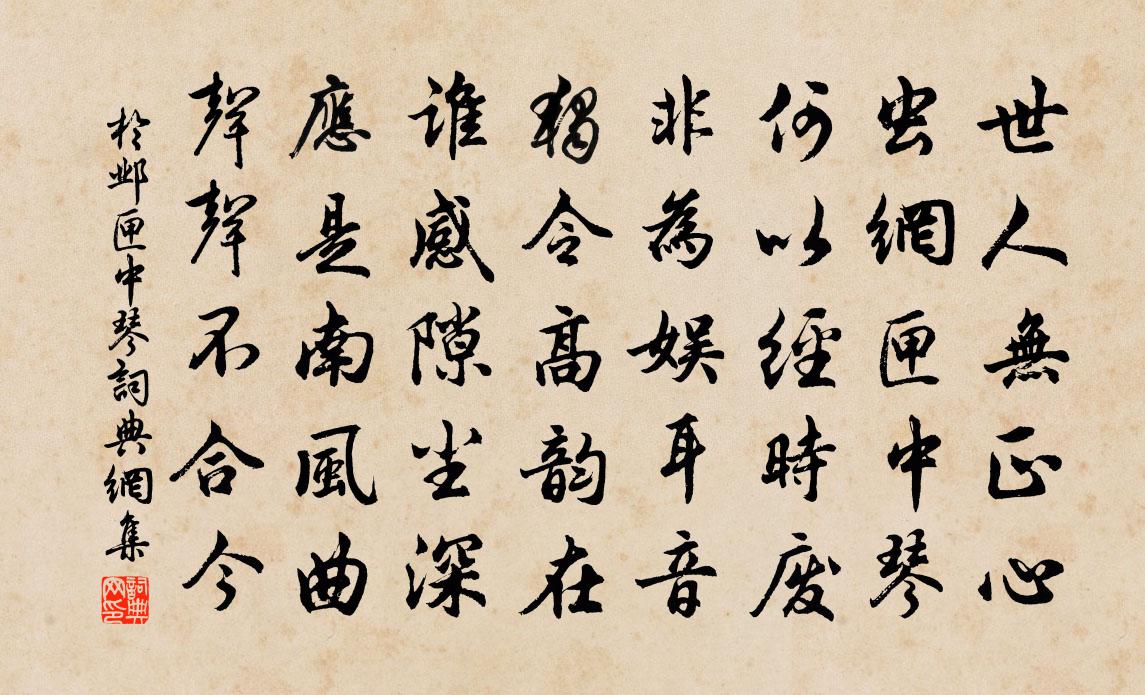 世人無正心
虫網匣中琴
何以經時廢
非為娛耳音
獨令高韵在
誰感隙尘深
應是南風曲
聲聲不合今
於邺匣中琴詞典網集
詞典网印